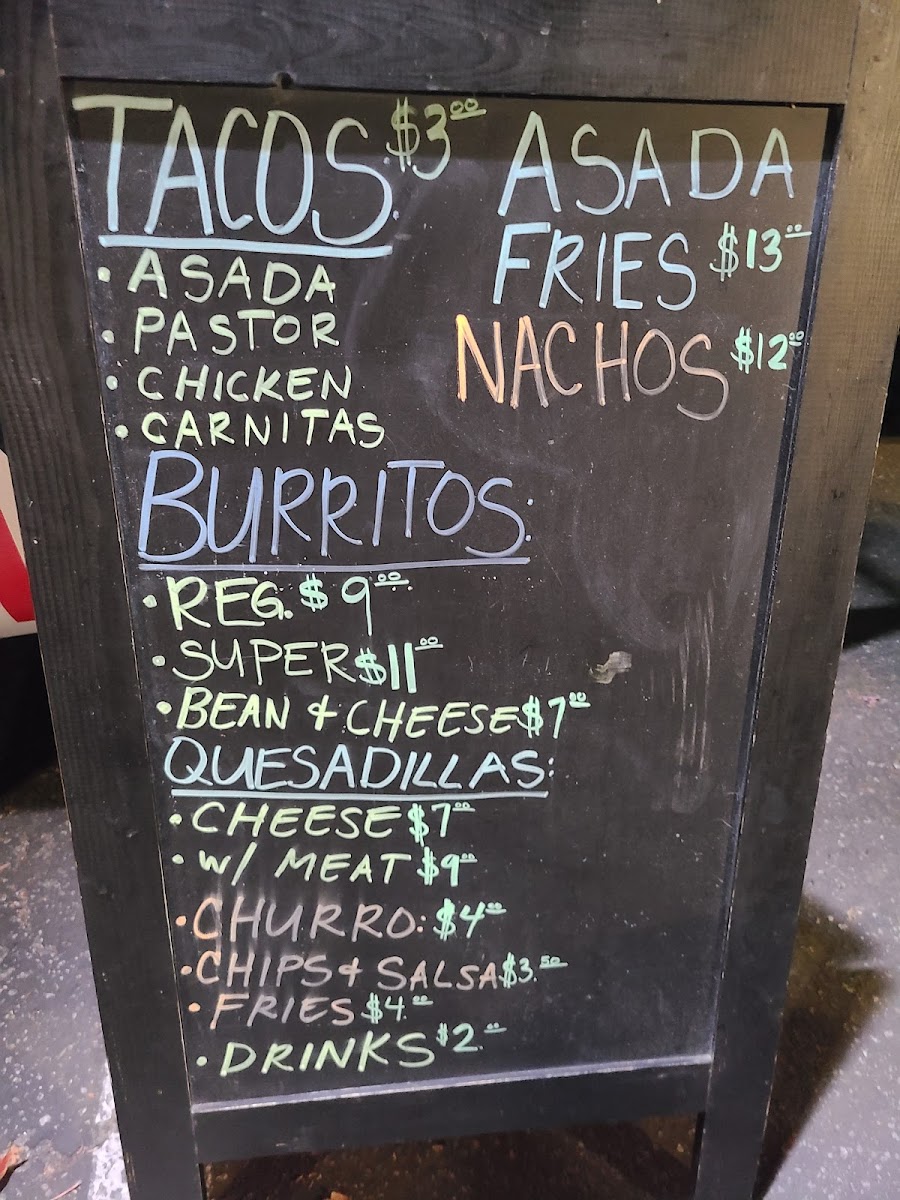 TACOS: $3.00
• ASADA
• PASTOR
• CHICKEN
• CARNITAS
BURRITOS:
• REG. $9.00
• SUPER $11.00
• BEAN + CHEESE $7.00
QUESADILLAS:
• CHEESE $7.00
• W/ MEAT $9.00
• CHURRO: $4.00
• CHIPS + SALSA $3.50
• FRIES $4.00
• DRINKS $2.00
ASADA
FRIES $13.00
NACHOS $12.00